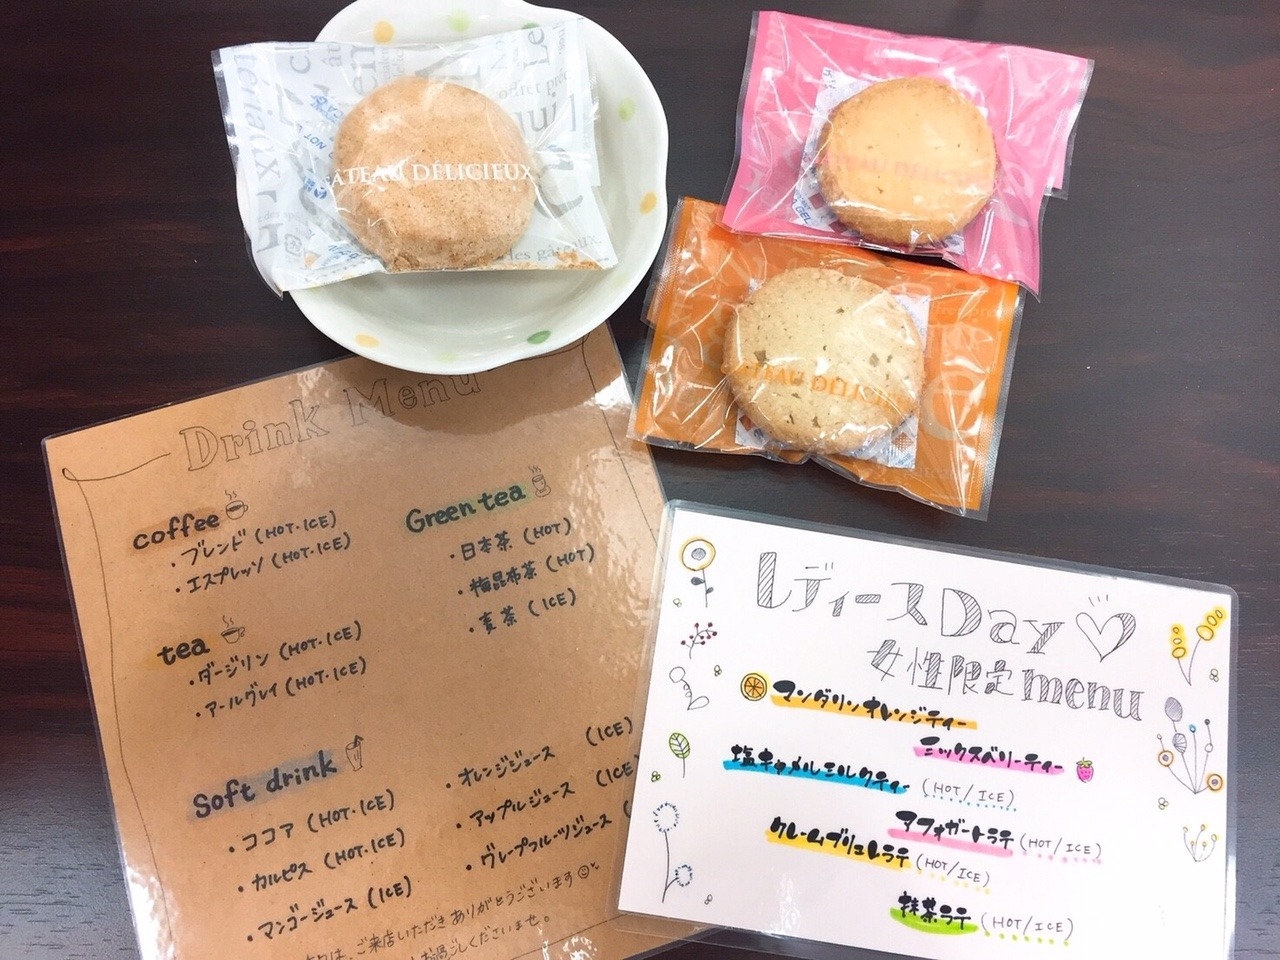 GATEAU DÉLICIEUX
les gâteaux,
Drink Menu
coffee
・ブレンド (HOT・ICE)
・エスプレッソ (HOT・ICE)
tea
・ダージリン (HOT・ICE)
・アールグレイ (HOT・ICE)
Green tea
・日本茶 (HOT)
・梅昆布茶 (HOT)
・麦茶 (ICE)
Soft drink
・ココア (HOT・ICE)
・カルピス (HOT・ICE)
・マンゴージュース (ICE)
・オレンジジュース (ICE)
・アップルジュース (ICE
・グレープフルーツジュース (
は、ご来店いただきありがとうございます
お過ごしくださいませ。
レディースDay♡
女性限定menu
マンダリンオレンジティー
ミックスベリーティー
塩キャメルミルクティー (HOT/ICE)
アフォガートラテ (HOT/ICE)
クレームブリュレラテ (HOT/ICE)
抹茶ラテ (HOT/ICE)